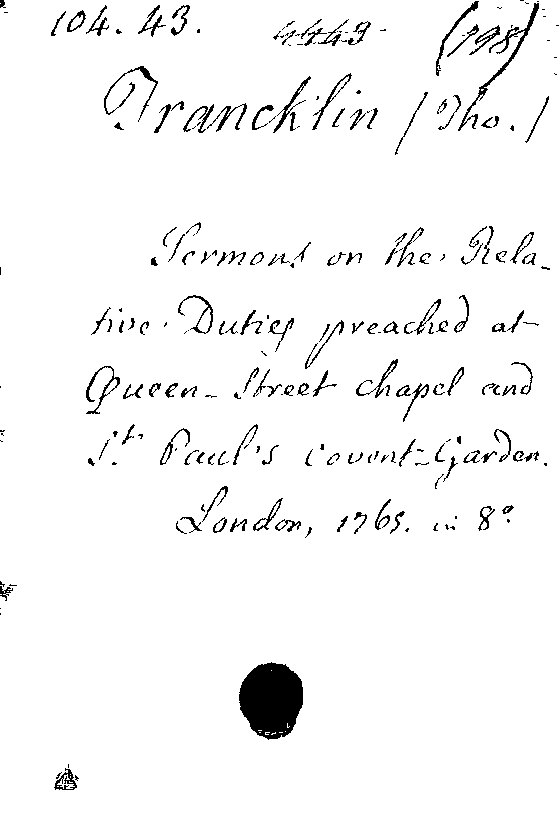 104. 43. 4443 (798)
Francklin / Tho. /
Sermons on the Rela-
tive Duties preached at
Queen-Street chapel and
St. Paul's covent-Garden.
London, 1765. in 8º